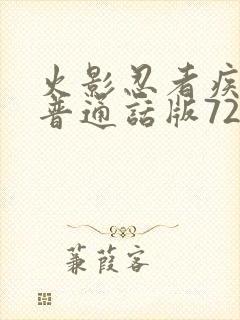 火影忍者疾
普通話版72
蒹葭客